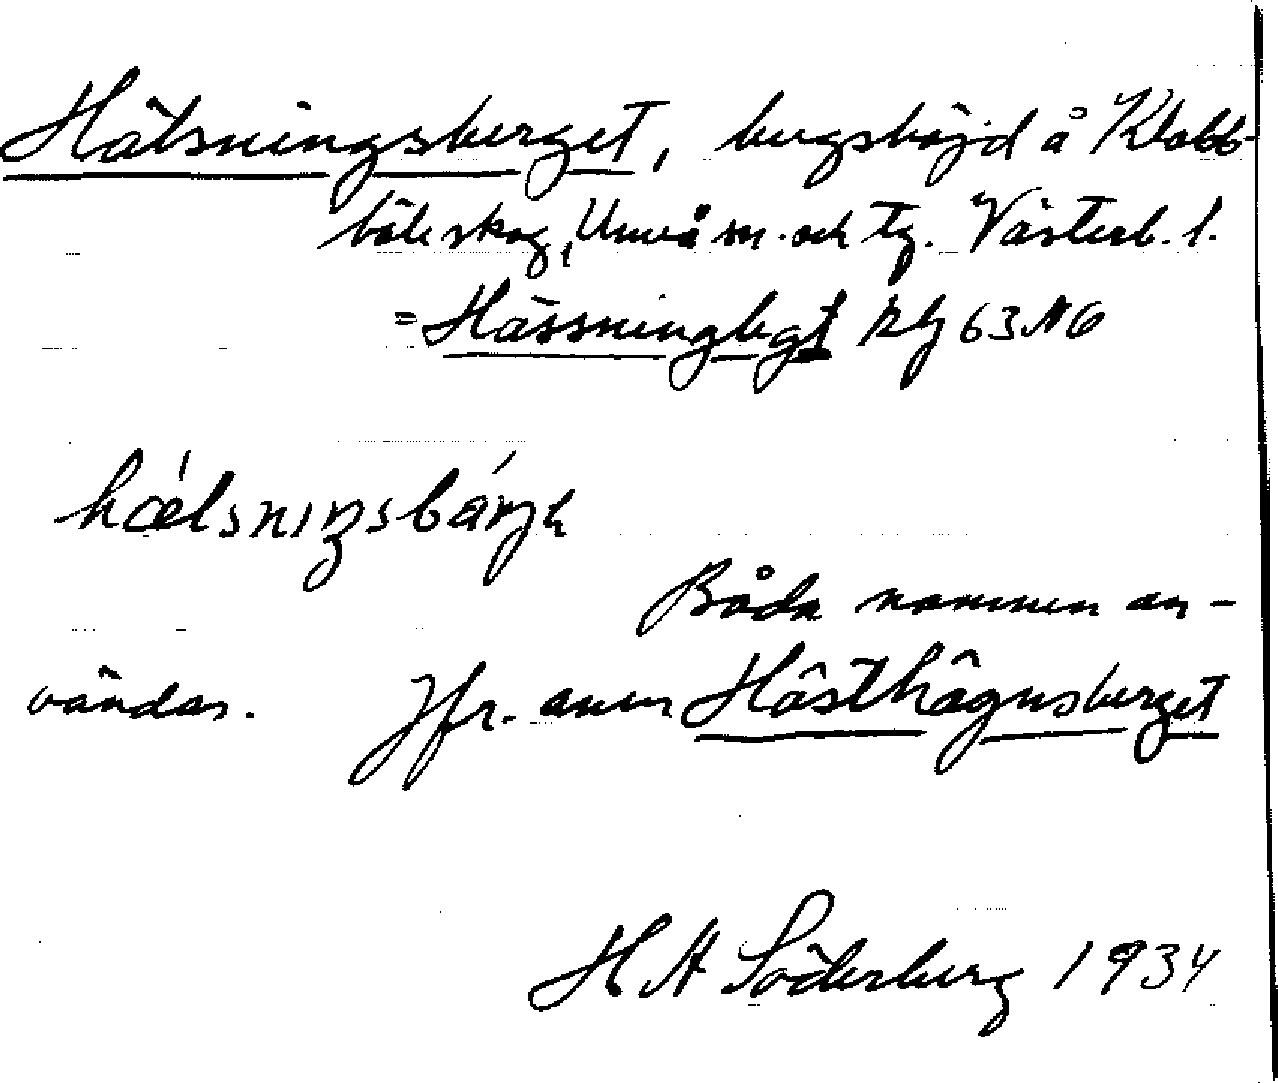 Hälsningsberget, bergshöjd å Klabb-
böle skog, Umeå sn. och tg. Västerb. l.
= Hässningbgt Rlj 63 NO
hælsniŋsbärjə
Båda namnen an-
vändas. Jfr. även Hästhägnsberget
H A Söderberg 1934